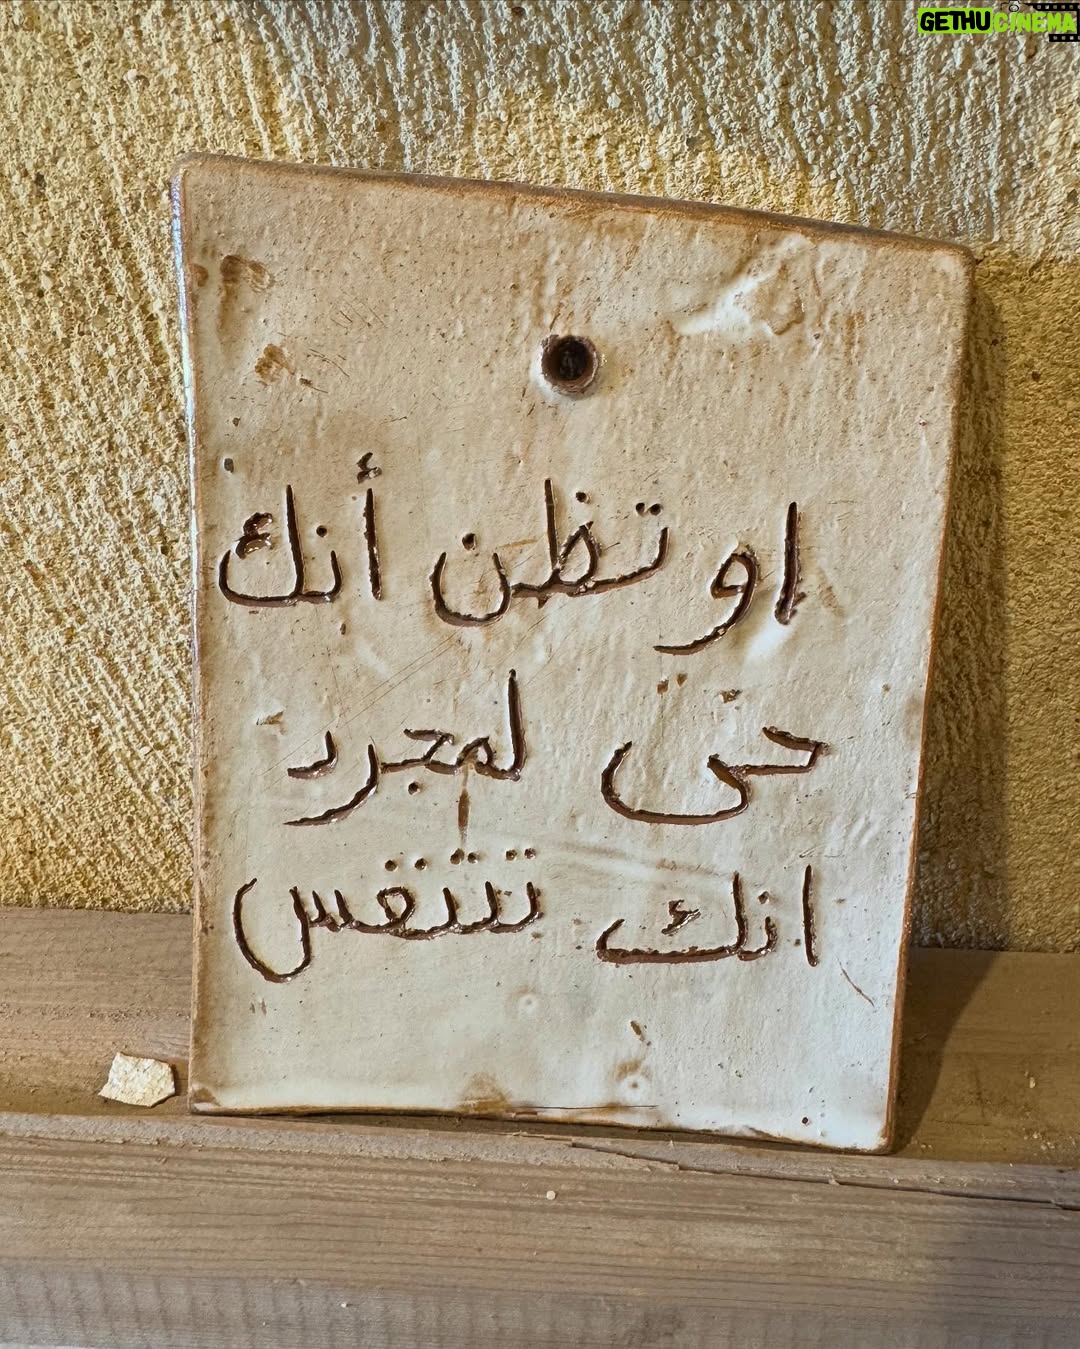 GETHUCINEMA
او تظن أنك
حى لمجرد
انك تتنفس